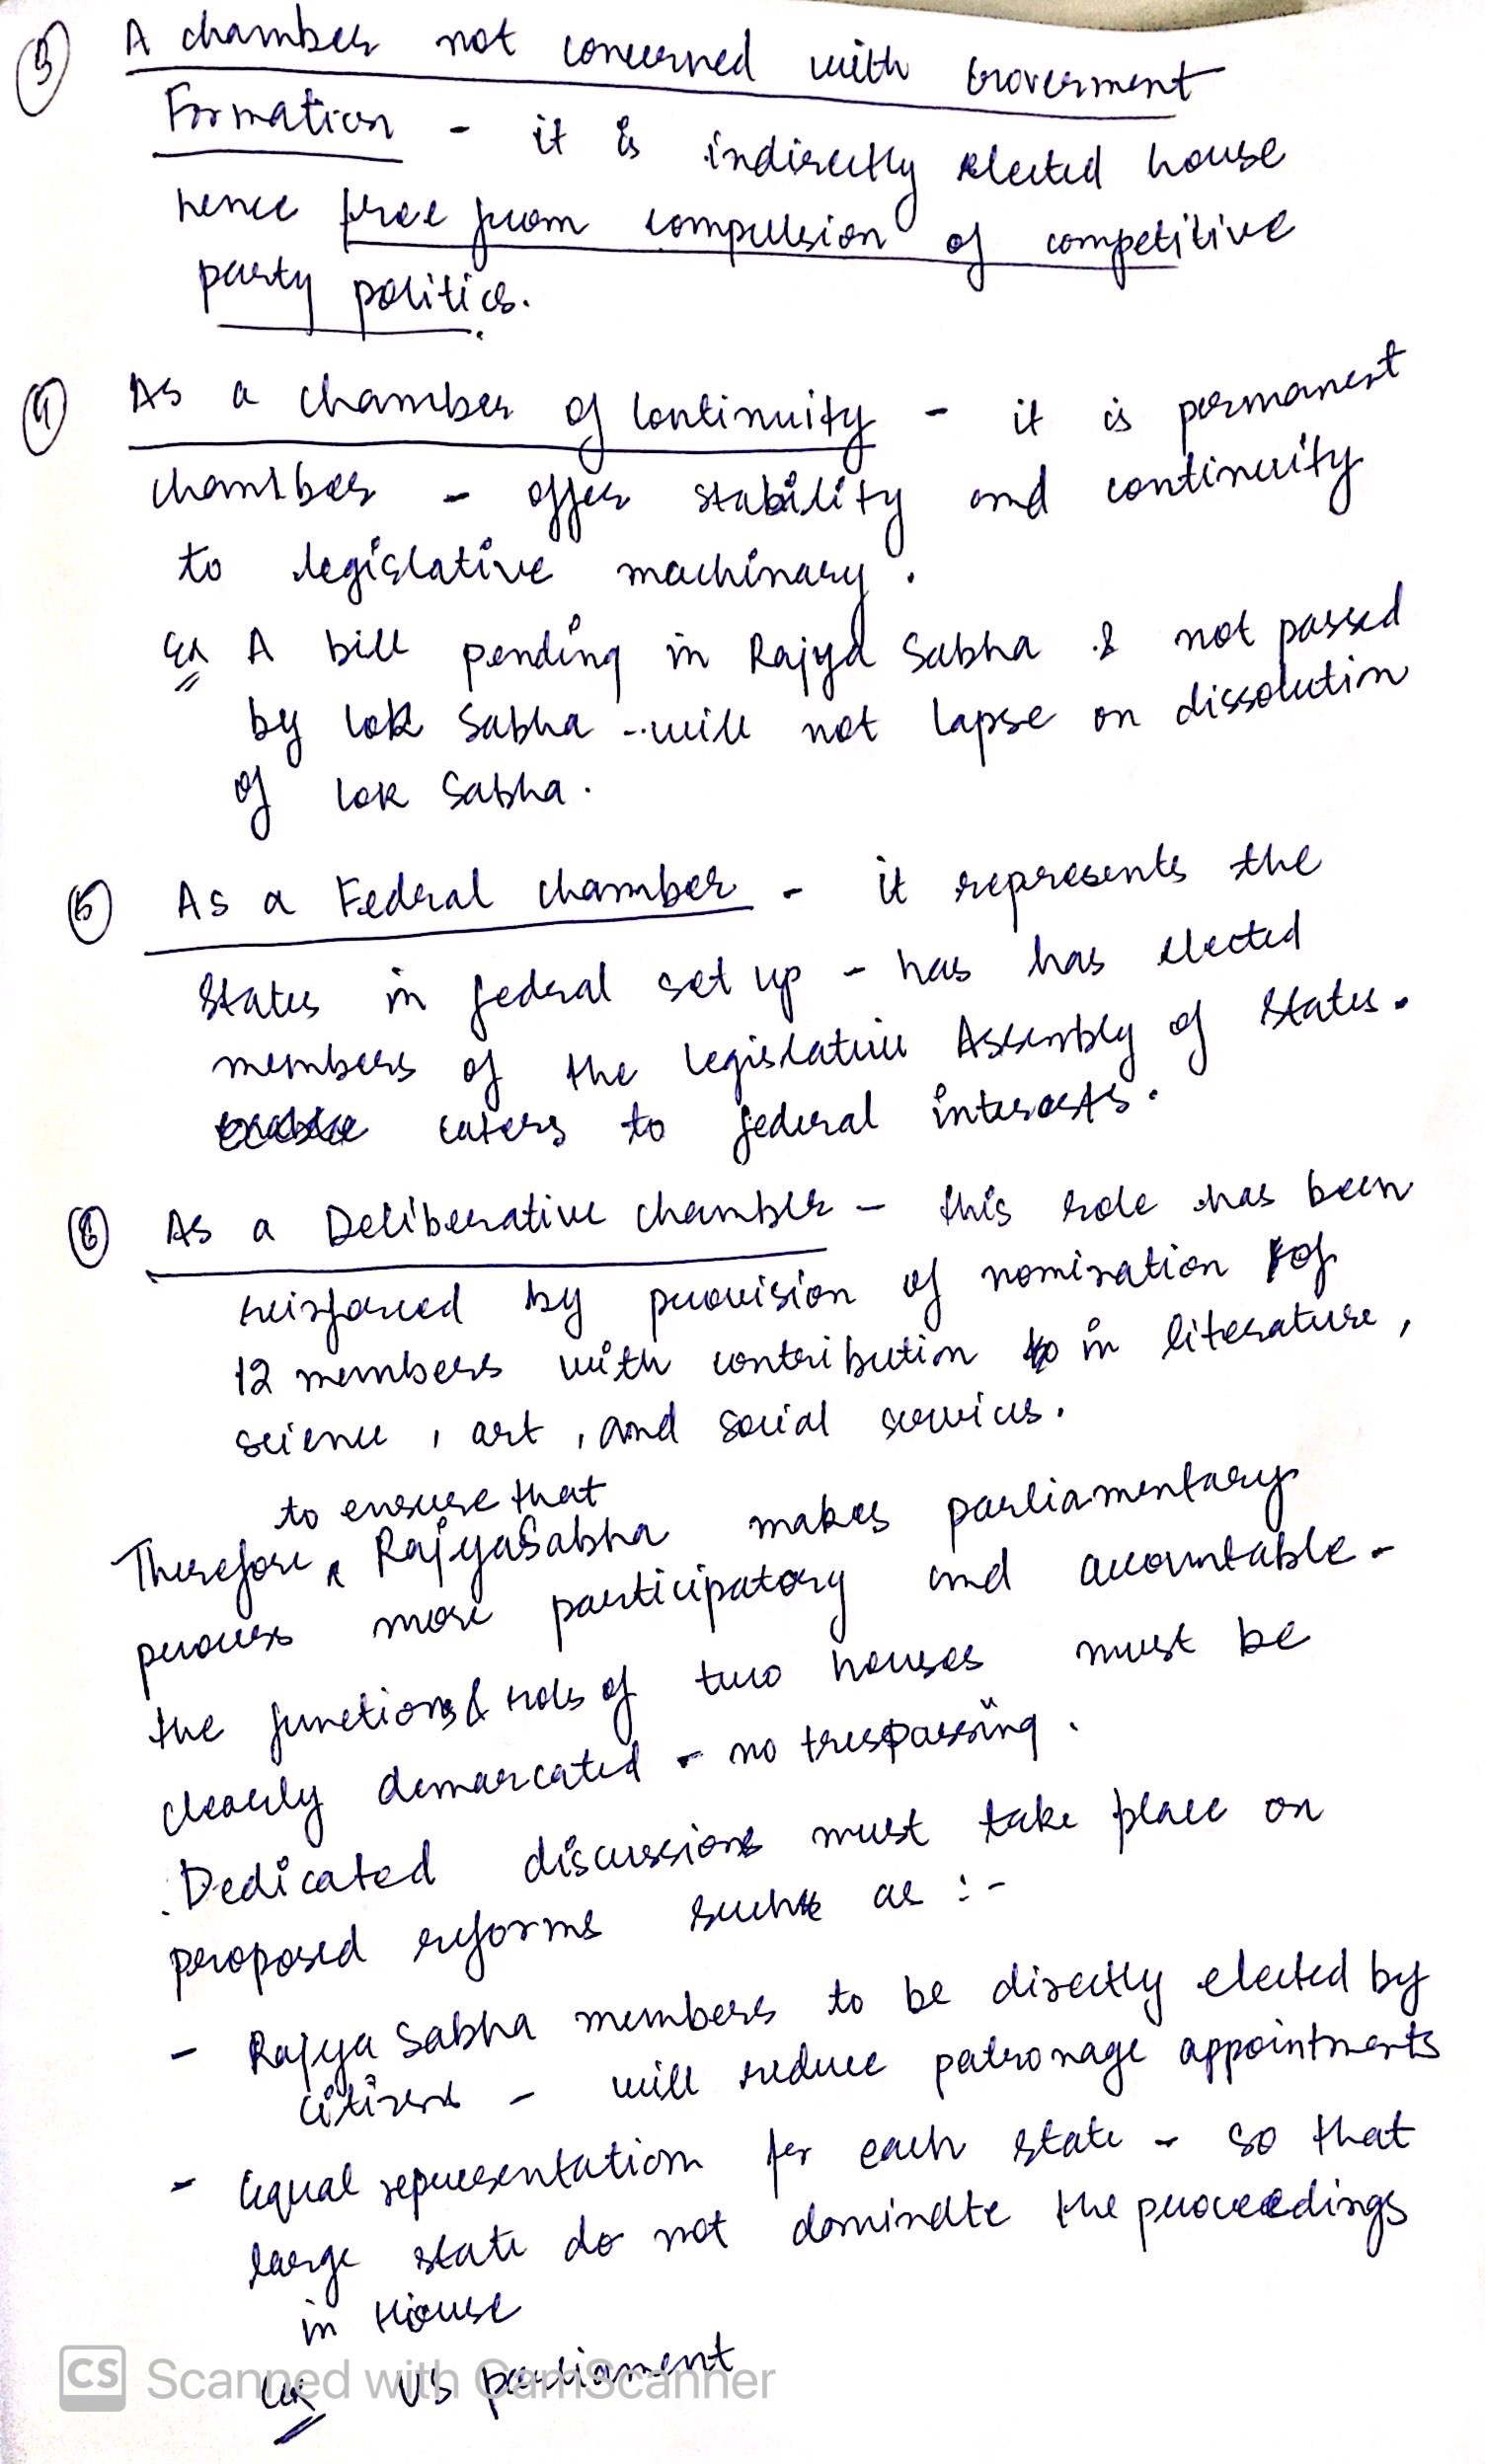 ③ A chamber not concerned with Goverment
Formation - it is indirectly elected house
hence free from compulsion of competitive
party politics.
④ As a chamber of Continuity - it is permanent
chamber - offer stability and continuity
to legislative machinary.
Ex A bill pending in Rajya Sabha & not passed
by Lok Sabha - will not lapse on dissolution
of Lok Sabha.
⑤ As a Federal chamber - it represents the
States in federal set up - has has elected
members of the Legislative Assembly of States.
caters to federal interests.
⑥ As a Deliberative chamber - this role has been
reinforced by provision of nomination of
12 members with contribution in literature,
science, art, and social services.
to ensure that
Therefore, RajyaSabha makes parliamentary
process more participatory and accountable -
the functions & roles of two houses must be
clearly demarcated - no trespassing.
Dedicated discussions must take place on
proposed reforms such as :-
- Rajya Sabha members to be directly elected by
citizens - will reduce patronage appointments
- Equal representation for each state - so that
large state do not dominate the proceedings
in House
Ex US parliament
CS Scanned with CamScanner